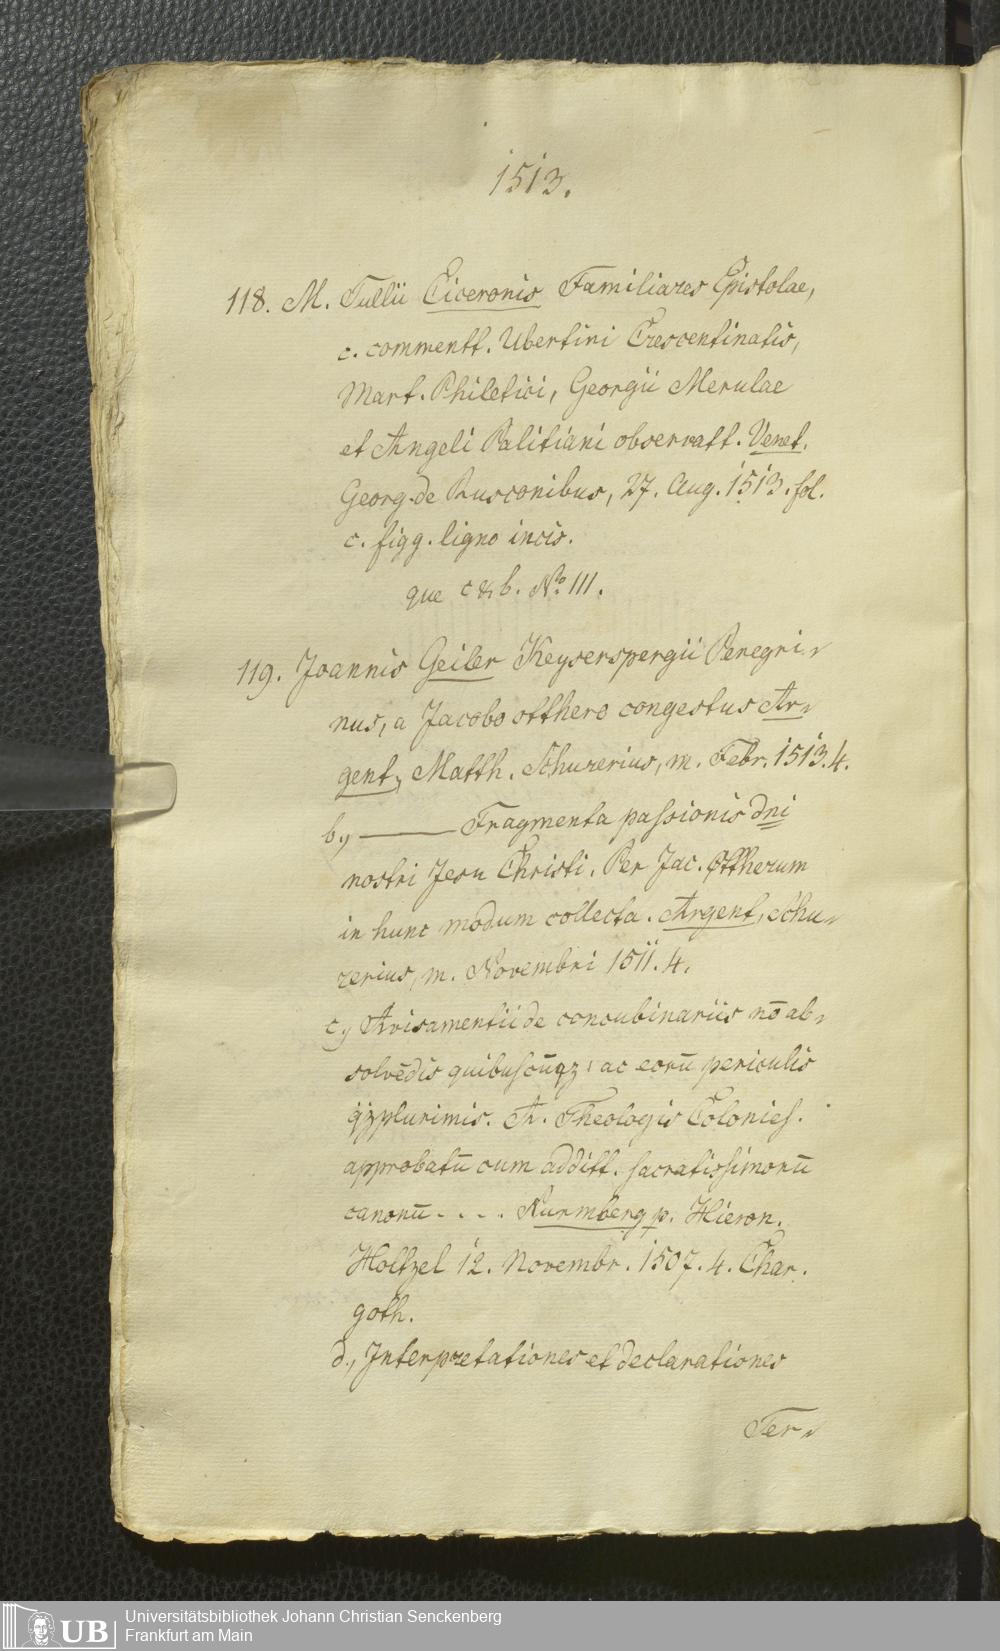 1513.
118. M. Tullii Ciceronis Familiares Epistolae,
c. commentt. Ubertini Crescentinatis,
Mart. Philetici, Georgii Merulae
et Angeli Politiani observatt. Venet.
Georg. de Rusconibus, 27. Aug. 1513. fol.
c. figg. ligno incis.
que c & b. No. 111.
119. Joannis Geiler Keyserspergii Peregri-
nus, a Jacobo otthero congestus Ar-
gent, Matth. Schurerius, m. Febr. 1513. 4.
b, ——— Fragmenta passionis dni
nostri Jesu Christi. Per Jac. Ottherum
in hunc modum collecta. Argent, Schu-
rerius, m. Novembri 1511. 4.
c, Avisamentii de concubinariis nō ab-
solvēdis quibuscūqz, ac eorū periculis
qzplurimis. A. Theologis Colonies.
approbatū cum additt. sacratissimorū
canonū . . . . Nurmberg p. Hieron.
Holtzel 12. Novembr. 1507. 4. Char.
goth.
d, Interpretationes et declarationes
Ter-
UB
Universitätsbibliothek Johann Christian Senckenberg
Frankfurt am Main